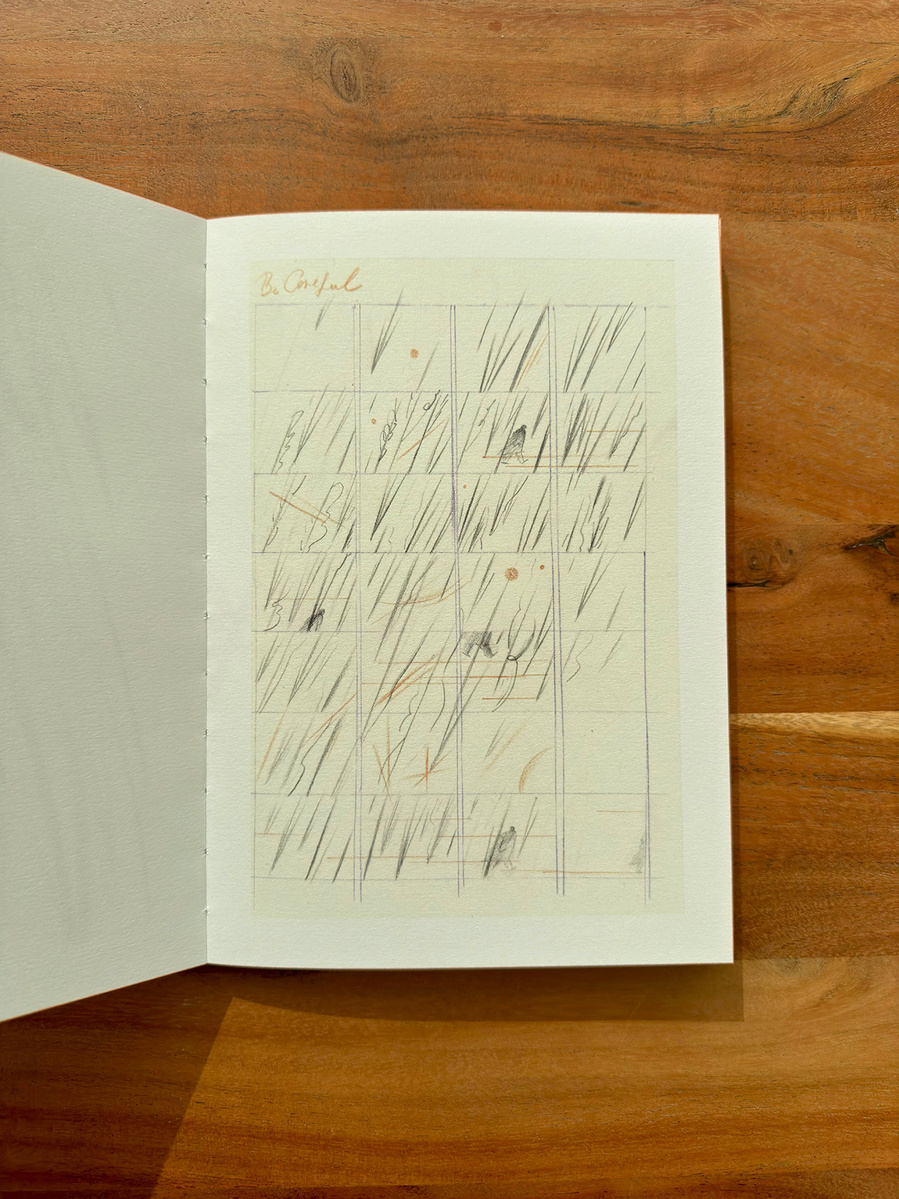 Be Careful